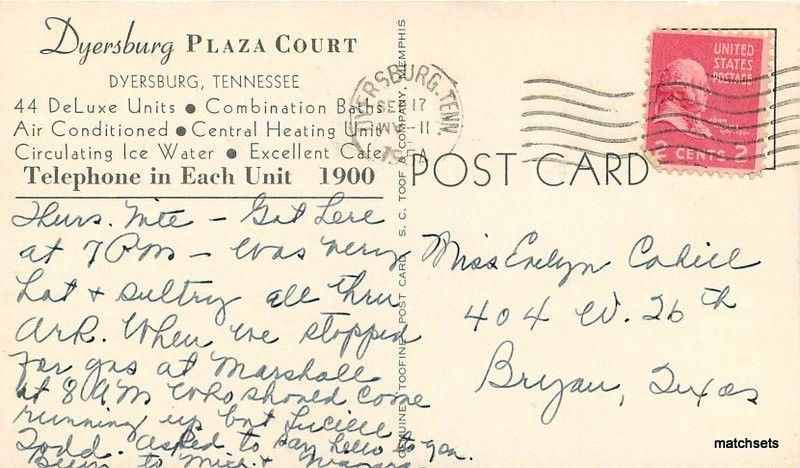 Dyersburg PLAZA COURT
DYERSBURG, TENNESSEE
44 DeLuxe Units ● Combination Baths
Air Conditioned ● Central Heating Unit
Circulating Ice Water ● Excellent Cafe
Telephone in Each Unit 1900
Thurs. nite – Got here
at 7 PM – was very
hot & sultry all thru
Ark. When we stopped
for gas at Marshall
at 8 AM who should come
running up but Lucille
Todd. asked to say hello to you.
Been to
DYERSBURG, TENN.
SEP 17
AM
GENUINE TOOFINE POST CARD S. C. TOOF & COMPANY, MEMPHIS
UNITED
STATES
POSTAGE
JOHN
2 CENTS 2
POST CARD
Miss Evelyn Cahill
404 W. 26th
Bryan, Texas
matchsets